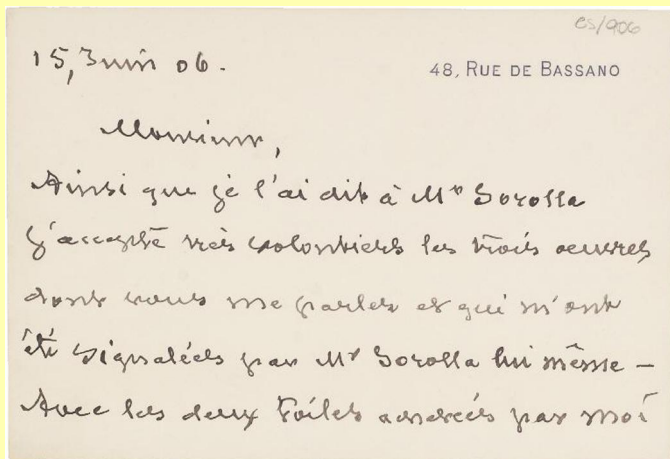 CS/906
15, Juin 06.
48, RUE DE BASSANO
Monsieur,
Ainsi que je l'ai dit à Mr Sorolla
j'accepte très volontiers les trois œuvres
dont vous me parlez et qui m'ont
été signalées par Mr Sorolla lui même –
Avec les deux toiles par moi